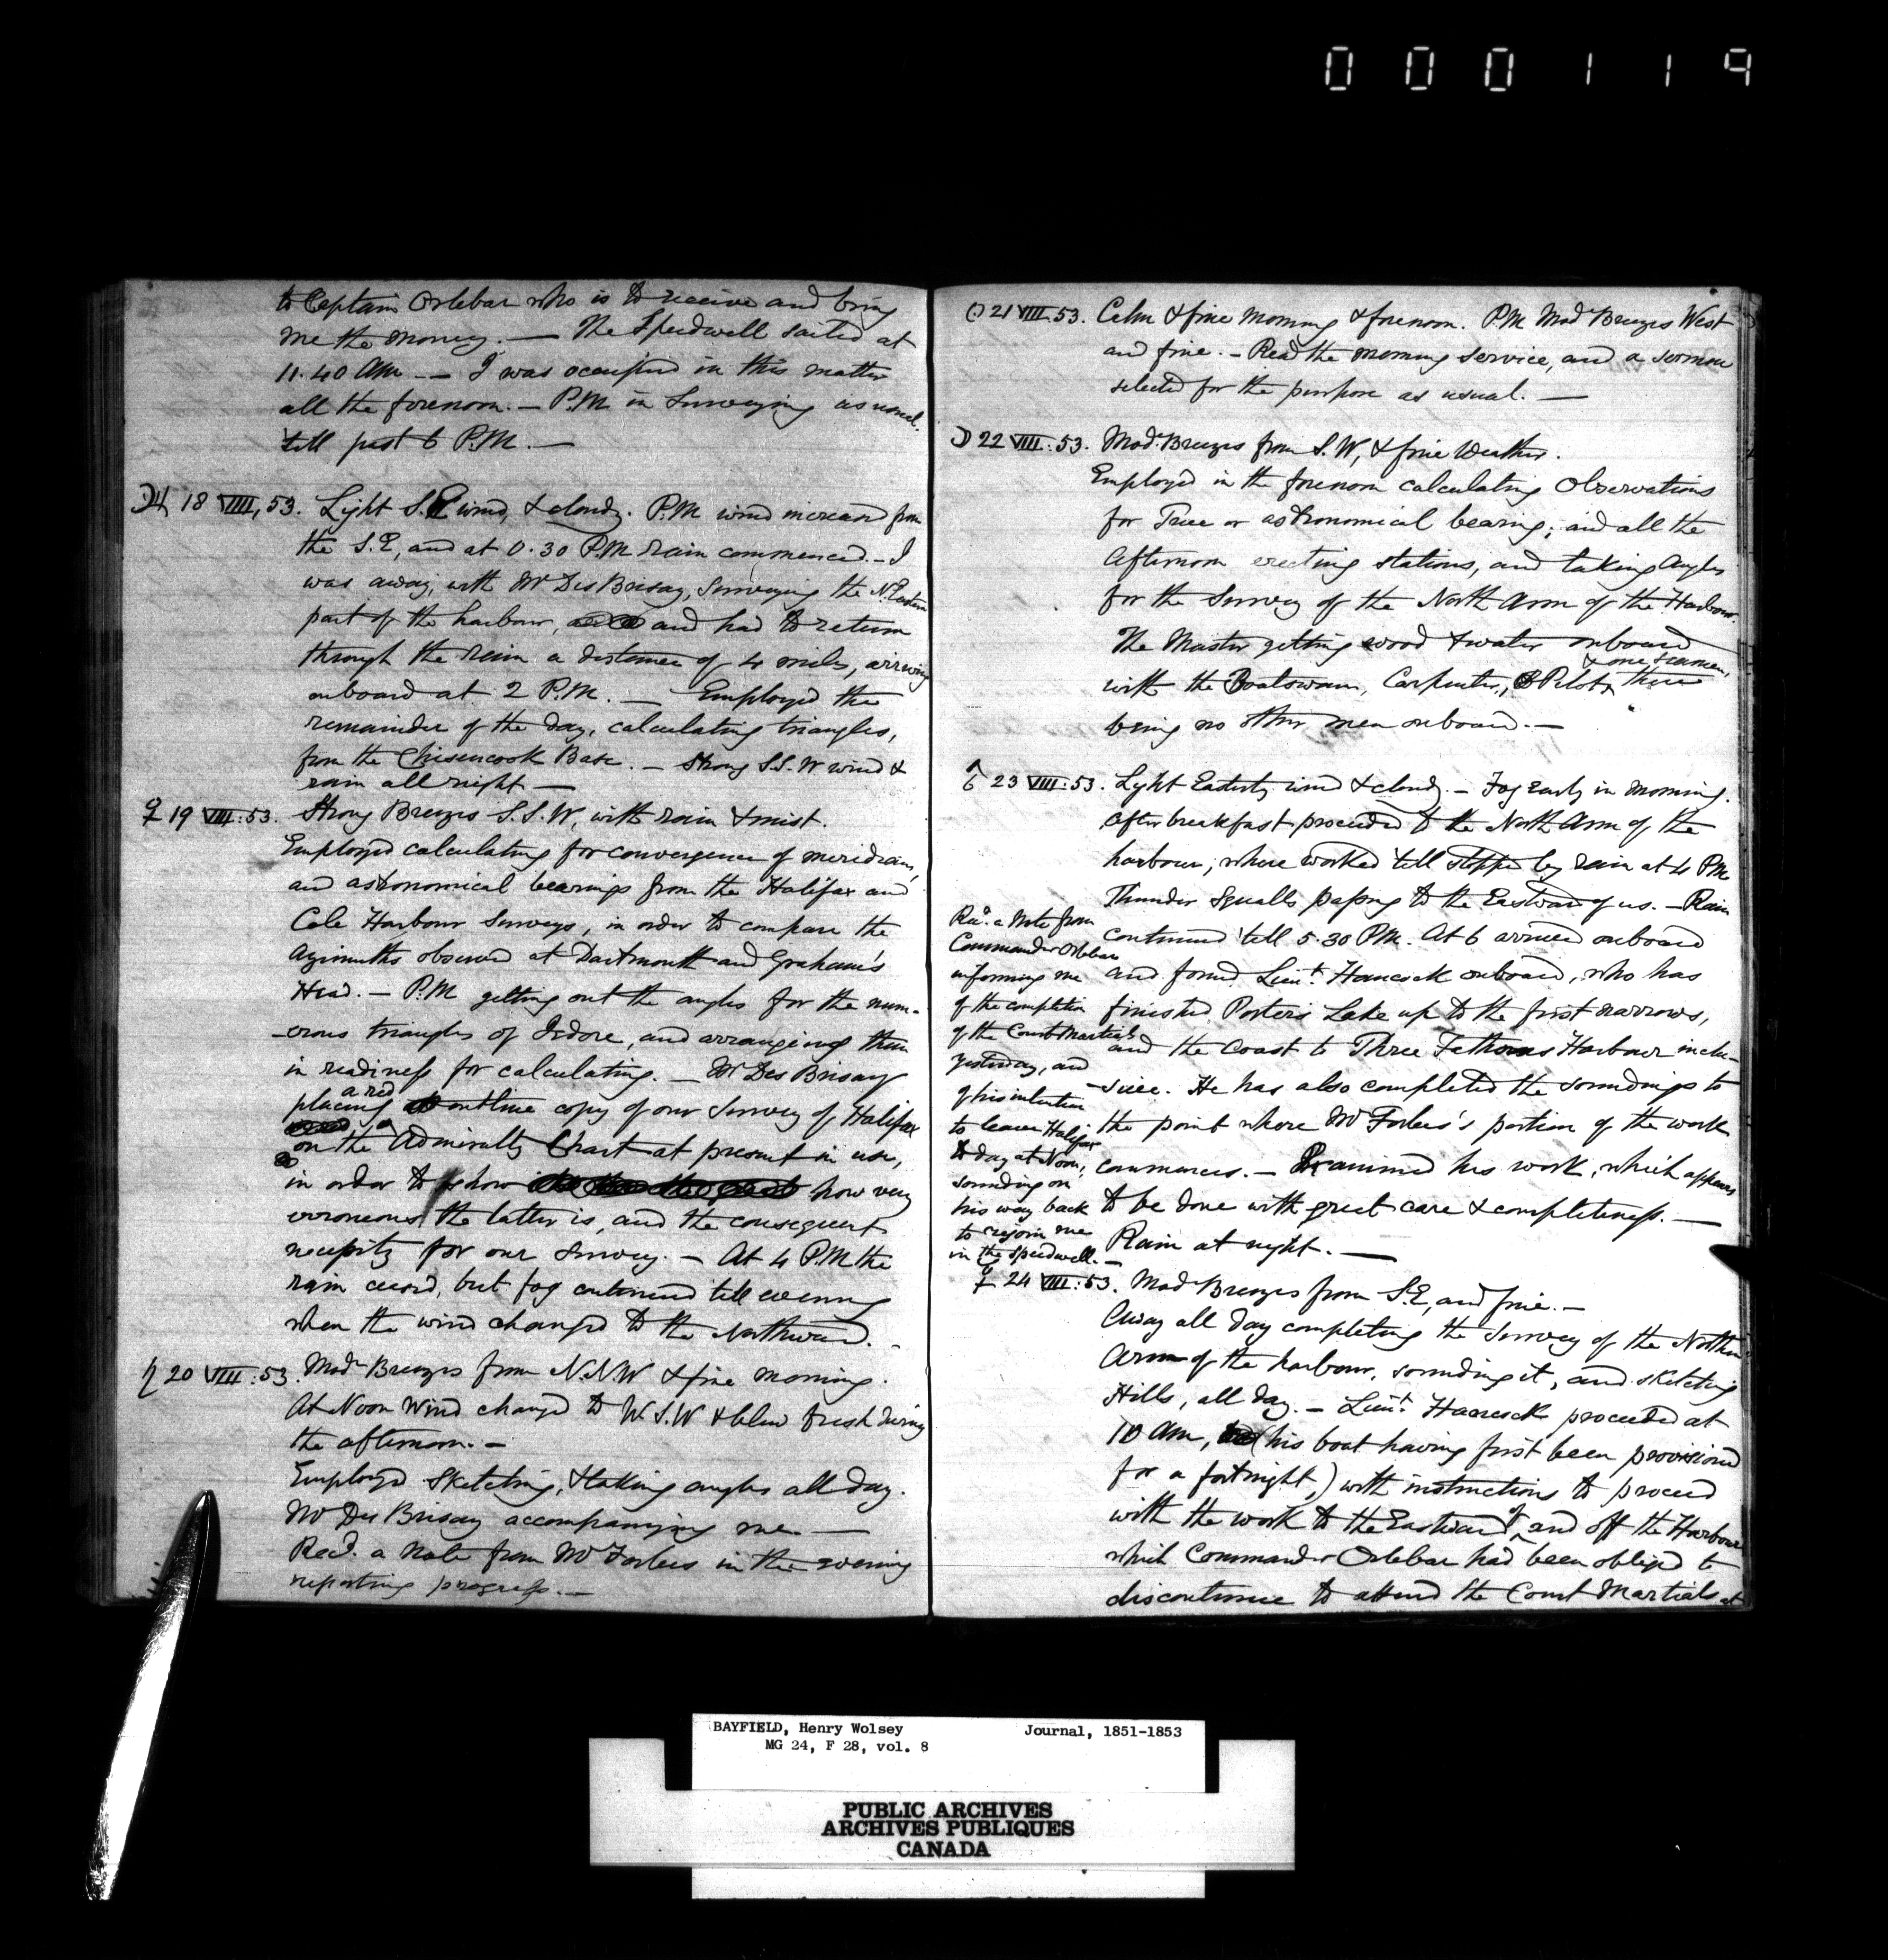 000119
to Captain Orlebar who is to receive and bring
me the money. — The Speedwell sailed at
11.40 AM — I was occupied in this matter
all the forenoon. — P.M in Surveying as usual.
till past 6 P.M. —
♃ 18 VIII, 53. Light S.E wind, & cloudy. P.M wind increased from
the S.E, and at 0.30 P.M rain commenced. — I
was away, with Mr Des Brisay, Surveying the N.Eastern
part of the harbour, and had to return
through the rain a distance of 4 miles, arriving
onboard at 2 P.M. — Employed the
remainder of the day, calculating triangles,
from the Chisencook Base. — Strong S.S.W wind &
rain all night —
♀ 19 VIII:53. Strong Breezes S.S.W, with rain & mist.
Employed calculating for convergence of meridians,
and astronomical bearings from the Halifax and
Cole Harbour Surveys, in order to compare the
Azimuths observed at Dartmouth and Graham's
Head. — P.M getting out the angles for the num-
-erous triangles of Jedore, and arranging them
in readiness for calculating. — Mr Des Brisay
placing a red outline copy of our Survey of Halifax
on the Admiralty Chart at present in use,
in order to show how very
erroneous the latter is, and the consequent
necessity for our Survey. — At 4 P.M the
rain ceased, but fog continued till evening
when the wind changed to the Northward. —
♄ 20 VIII:53. Modr Breezes from N.N.W & fine morning.
At Noon Wind changed to W.S.W & blew fresh during
the afternoon. —
Employed Sketching, & taking angles all day.
Mr Des Brisay accompanying me. —
Recd. a Note from Mr Forbes in the evening
reporting progress. —
☉ 21 VIII.53. Calm & fine Morning & forenoon. P.M Modr Breezes West
and fine. — Read the morning service, and a sermon
selected for the purpose as usual. —
☽ 22 VIII:53. Modr Breezes from S.W, & fine Weather.
Employed in the forenoon calculating Observations
for True or astronomical bearing; and all the
Afternoon erecting stations, and taking Angles
for the Survey of the North Arm of the Harbour.
The Master getting wood & water onboard
& one Seaman,
with the Boatswain, Carpenter, & Pilot, there
being no other men onboard. —
♂ 23 VIII:53. Light Easterly wind & cloudy. — Fog early in morning.
After breakfast proceeded to the North Arm of the
harbour, where worked till stopped by rain at 4 PM
Thunder Squalls passing to the Eastward of us. — Rain
continued till 5.30 PM. At 6 arrived onboard
and found Lieut. Hancock onboard, who has
finished Porter's Lake up to the first narrows,
and the Coast to Three Fathoms Harbour inclu-
-sive. He has also completed the soundings to
the point where Mr Forbes's portion of the work
commences. — Examined his work, which appears
to be done with great care & completeness. —
Rain at night. —
Recd. a Note from
Commander Orlebar
informing me
of the completion
of the Court Martials
yesterday, and
of his intention
to leave Halifax
to day at Noon,
sounding on
his way back
to rejoin me
in the Speedwell. —
☿ 24 VIII:53. Modr Breezes from S.E, and fine. —
Away all day completing the Survey of the Northn
Arm of the harbour, sounding it, and sketching
Hills, all day. — Lieut. Hancock proceeded at
10 AM, (his boat having first been provisioned
for a fortnight,) with instructions to proceed
with the work to the Eastward of, and off the Harbour
which Commander Orlebar had been obliged to
discontinue to attend the Court Martials at
BAYFIELD, Henry Wolsey Journal, 1851-1853
MG 24, F 28, vol. 8
PUBLIC ARCHIVES
ARCHIVES PUBLIQUES
CANADA